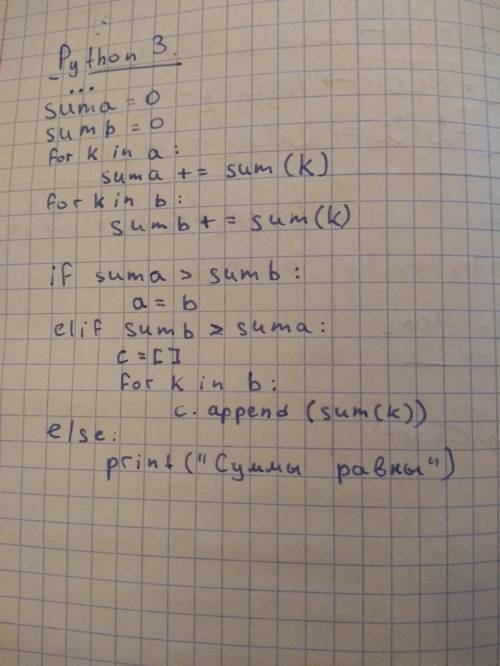 Python 3.
...
suma = 0
sumb = 0
for k in a:
suma += sum(k)
for k in b:
sumb += sum(k)
if suma > sumb:
a = b
elif sumb > suma:
c = []
for k in b:
c.append(sum(k))
else:
print("Суммы равны")